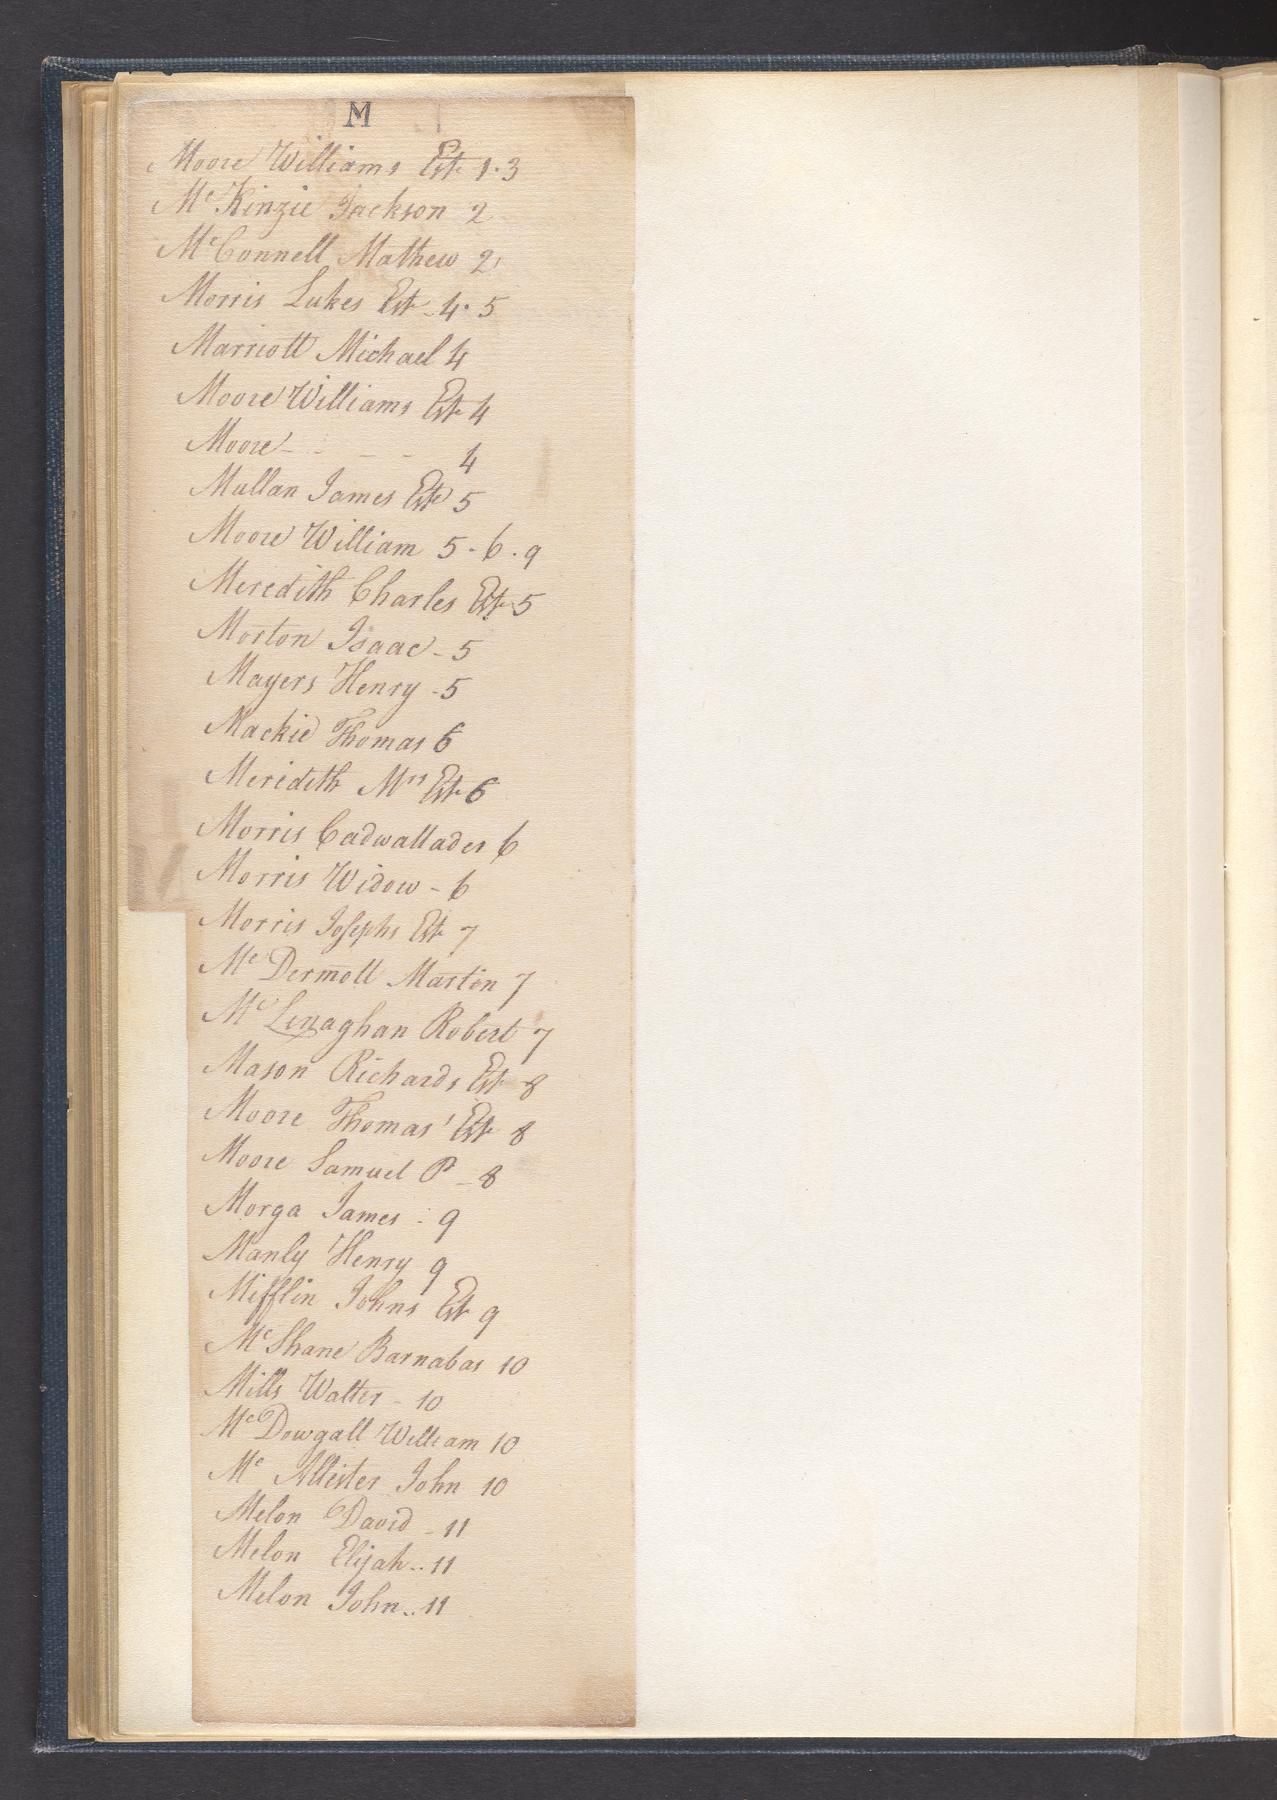 M
Moore Williams Est 1.3
Mc Kinzie Jackson 2
McConnell Mathew 2
Morris Lukes Est - 4. 5
Marriott Michael 4
Moore Williams Est 4
Moore - - - - 4
Mullan James Este 5
Moore William 5 - 6 . 9
Meredith Charles Est 5
Morton Isaac - 5
Mayers Henry - 5
Mackie Thomas 6
Meredith Mrs Est 6
Morris Cadwallader 6
Morris Widow - 6
Morris Josephs Est 7
Mc Dermott Martin 7
Mc Lenaghan Robert 7
Mason Richards Est 8
Moore Thomas' Est 8
Moore Samuel P - 8
Morga James - 9
Manly Henry 9
Mifflin Johns Est 9
McShane Barnabas 10
Mills Walter - 10
McDowgall William 10
Mc Allister John 10
Melon David - 11
Melon Elijah .. 11
Melon John .. 11